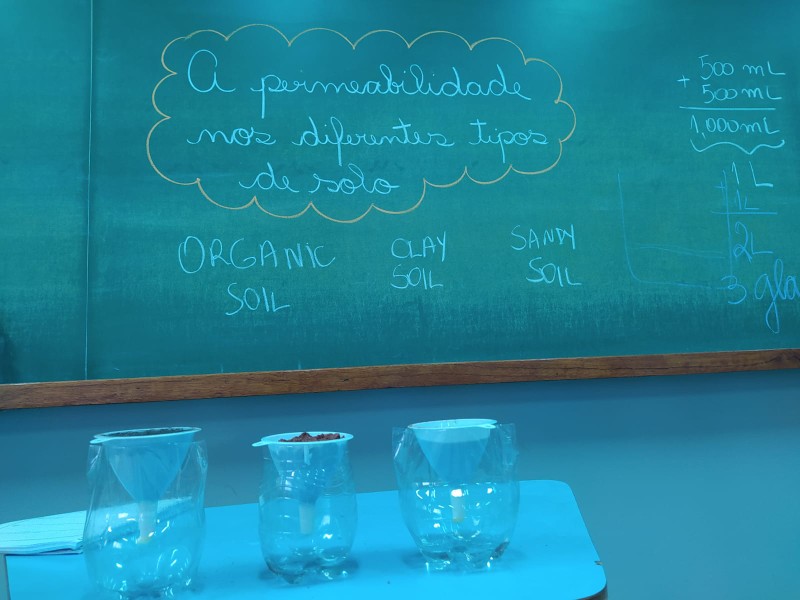 A permeabilidade
nos diferentes tipos
de solo
ORGANIC
SOIL
CLAY
SOIL
SANDY
SOIL
500 mL
+ 500 mL
1,000 mL
1L
1L
2L
3